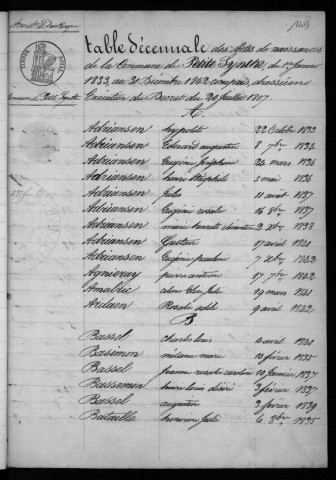 Table décennale des Actes de naissances
de la Commune de Petite Synthe, du 1er Janvier
1833, au 31 Décembre 1842 compris, dressée en
Exécution du Décret du 20 Juillet 1807.
A.
Adriansen hypolite 22 Octobre 1833
Adriansen Edouard augustin 8 7bre 1834
Adriansen Eugénie joséphine 24 mars 1836
Adriansen henri théophile 5 mai 1836
Adriansen Jules 11 avril 1837
Adriansen Eugénie rosalie 16 8bre 1837
Adriansen marie 1838
Adriansen Gaston 17 avril 1841
Adriansen Eugénie pauline 7 1842
pierre antoine 27 7bre 1842
Amalric Jules 19 mars 1841
Ardaen Rosalie adèle 9 avril 1842
B
Bassel charles louis avril 1840
Basemon mélanie marie 10 février 1835
Bassel jeanne rosalie caroline 10 janvier 1837
Bassemon henri louis désiré 3 février 1837
Bassel augustin 3 février 1839
Bataille honorine Julie 6 8bre 1835